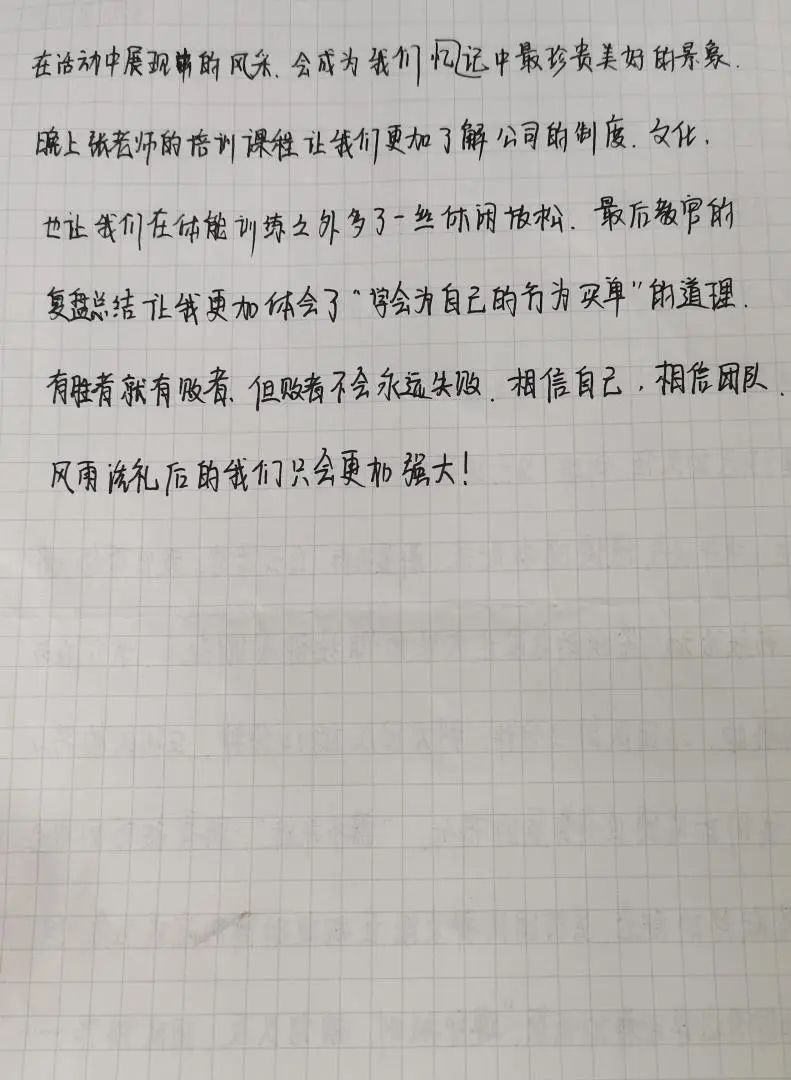 在活动中展现的风采.会成为我们忆记中最珍贵美好的景象.
晚上张老师的培训课程让我们更加了解公司的制度.文化,
也让我们在体能训练之外多了一丝休闲放松.最后教官的
复盘总结让我更加体会了“学会为自己的行为买单”的道理.
有胜者就有败者、但败者不会永远失败.相信自己,相信团队.
风雨洗礼后的我们只会更加强大!